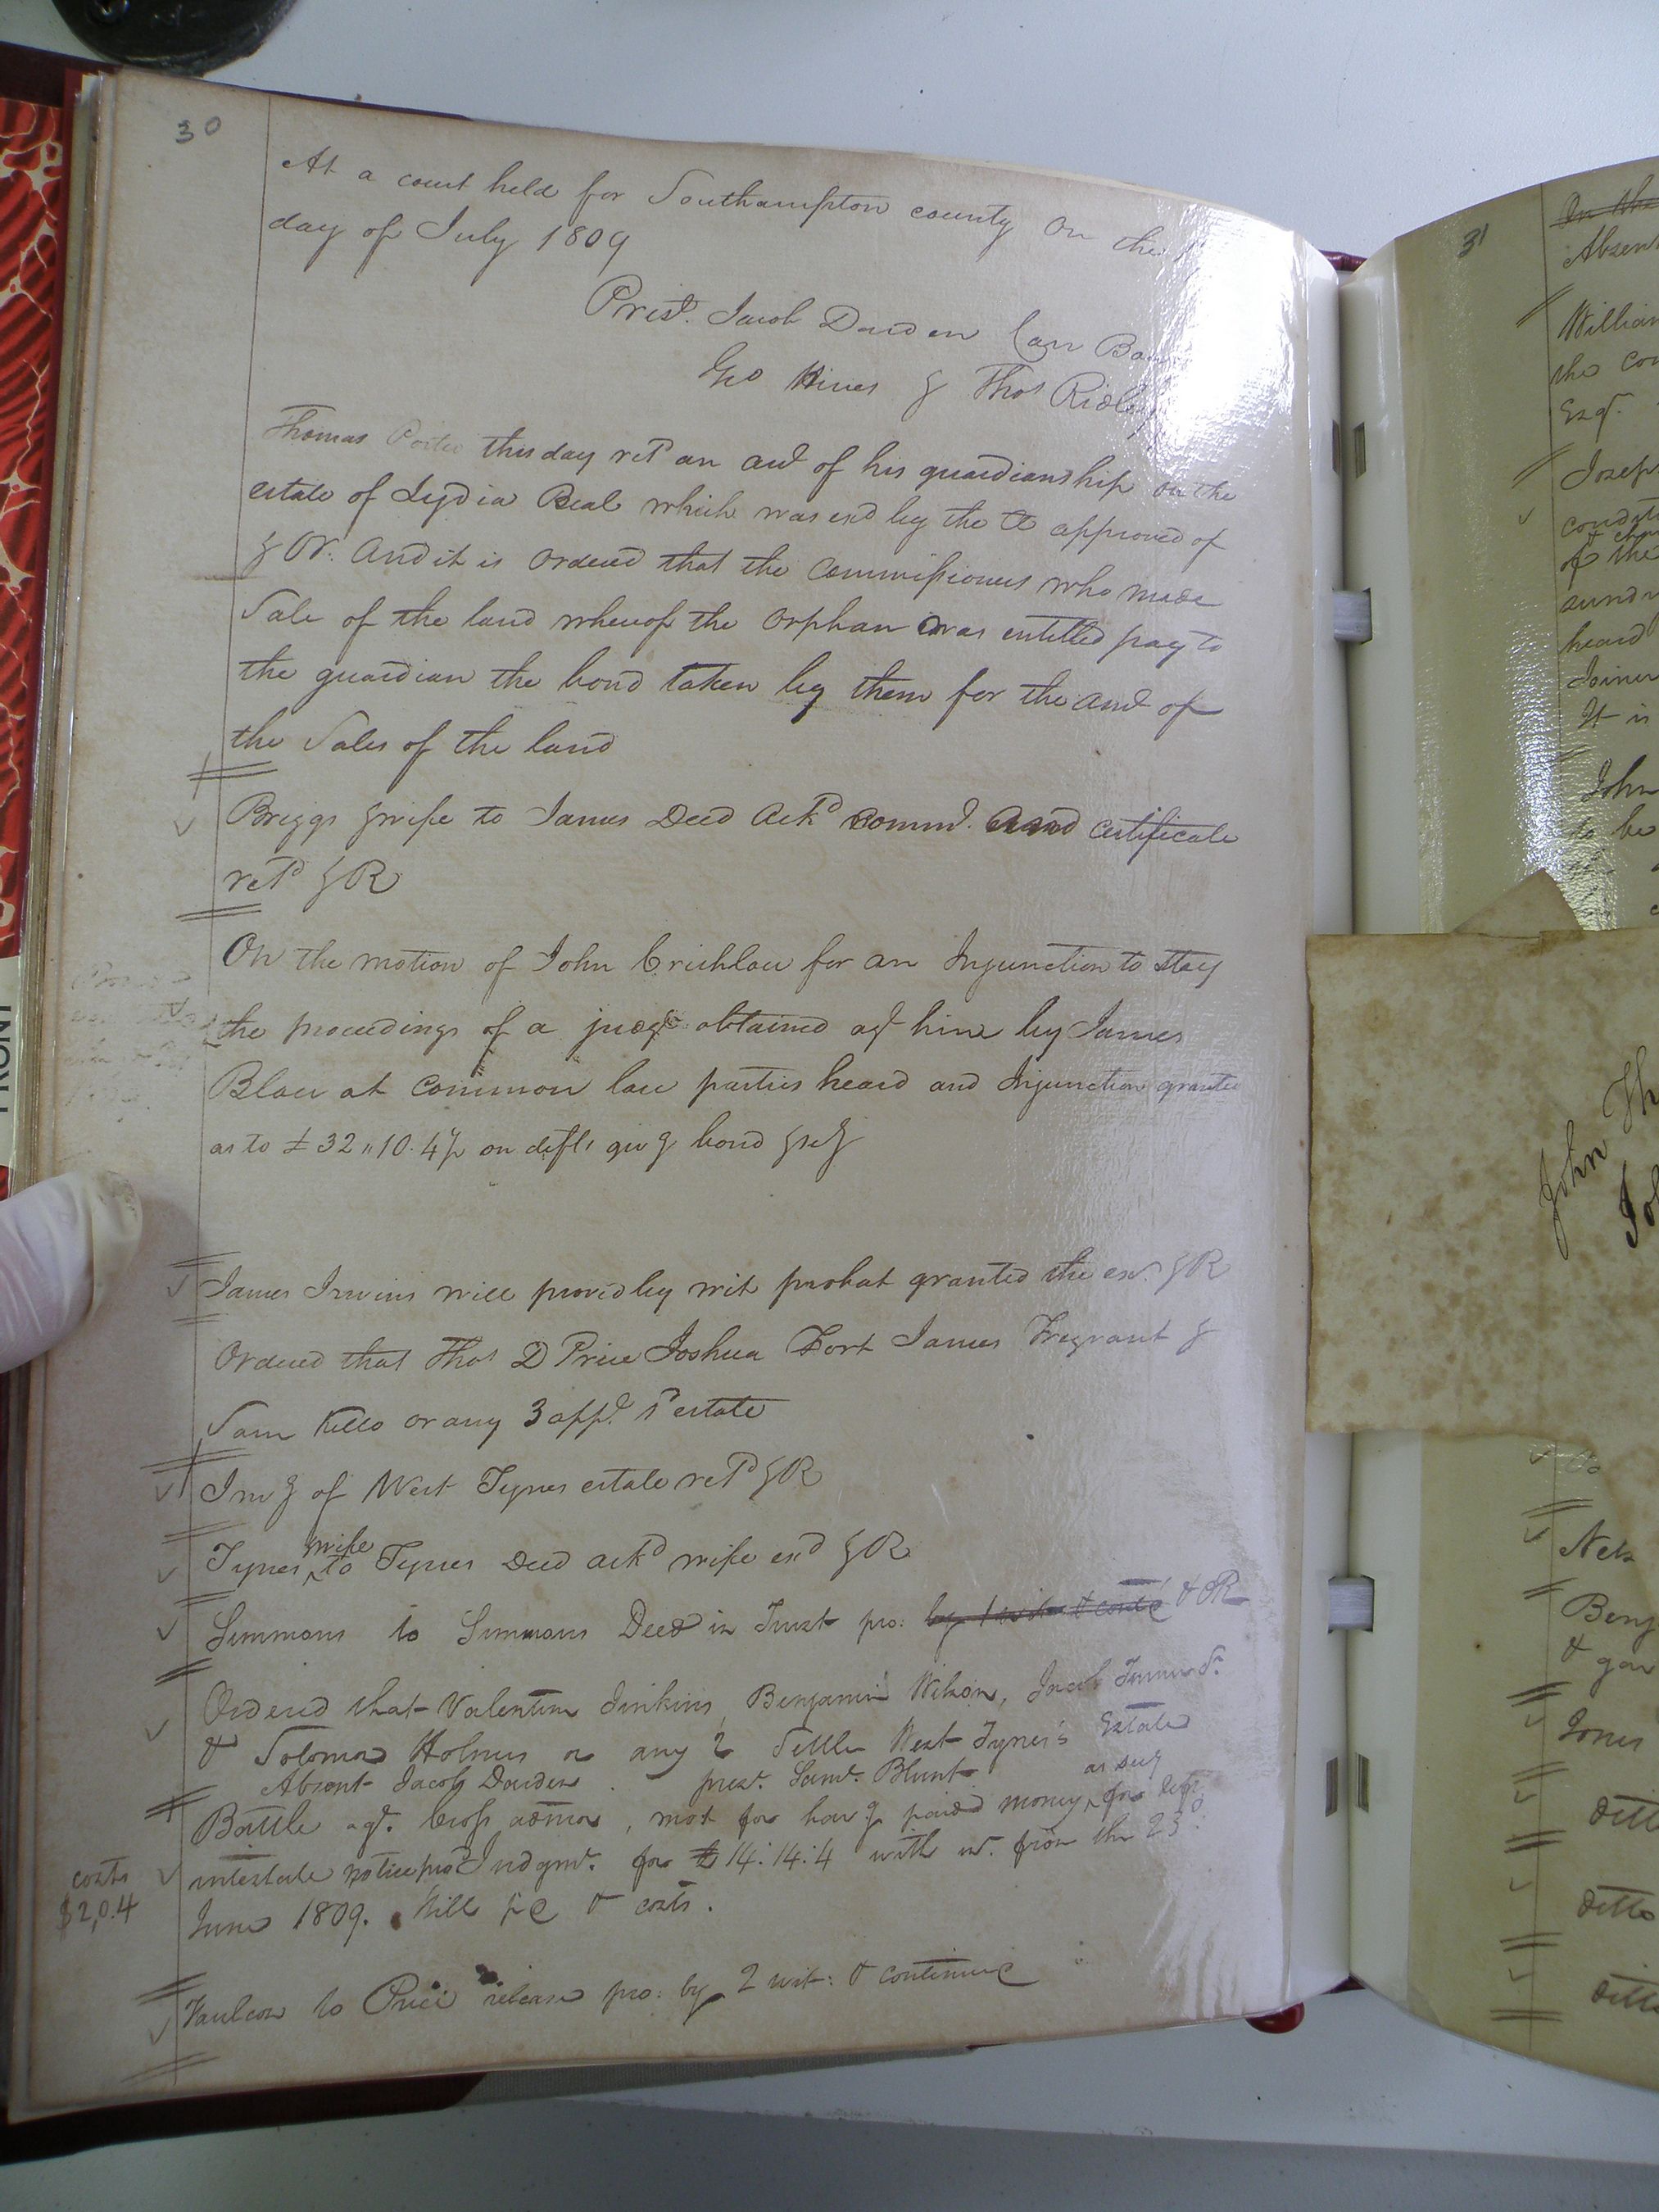 30
At a court held for Southampton county on the
day of July 1809
Prest. Jacob Darden Carr
Geo Hines & Thos Ridley
Thomas Porter this day retd an acct of his guardianship on the
estate of Lydia Beal which was exd by the Ct approved of
& OR. And it is ordered that the Commissioners who made
Sale of the land whereof the orphan was entitled pay to
the guardian the bond taken by them for the amt of
the Sales of the land
Briggs & wife to James Deed Ackd Comm. and certificate
retd & R
On the motion of John Crichlow for an Injunction to stay
the proceedings of a judgt obtained agt him by James
Blow at common law parties heard and Injunction granted
as to £32"10.4½ on defts givg bond &c
James Irwins will provd by wit probat granted the exr. & R
Ordered that Thos D Price Joshua Fort James Trezvant &
Sam Kello or any 3 appr. sd estate
Invy of West Tynes estate retd & R
Tynes & wife to Tynes Deed ackd wife exd & R
Simmons to Simmons Deed in Trust pro: by 1 wit & contd & OR
Ordered that Valentine Jinkins, Benjamin Wilson, Jacob Turner Sr.
& Solomon Holmes or any 2 Settle West Tynes's Estate
Absent Jacob Darden. prest. Saml. Blunt
Battle agt. Cross admor, mot for havg paid money as secy for defts
intestate notice prod Judgmt. for £14.14.4 with int. from the 23d.
June 1809. till pd & costs.
costs
$2,04
Faulcon to Price release pro: by 2 wit: & continued
31
Absent
William
the
Esqr.
Joseph
of the
heard
Joiner
It is
John
to be
John Th
Jo
Benj
&
Jones
ditto
ditto
ditto